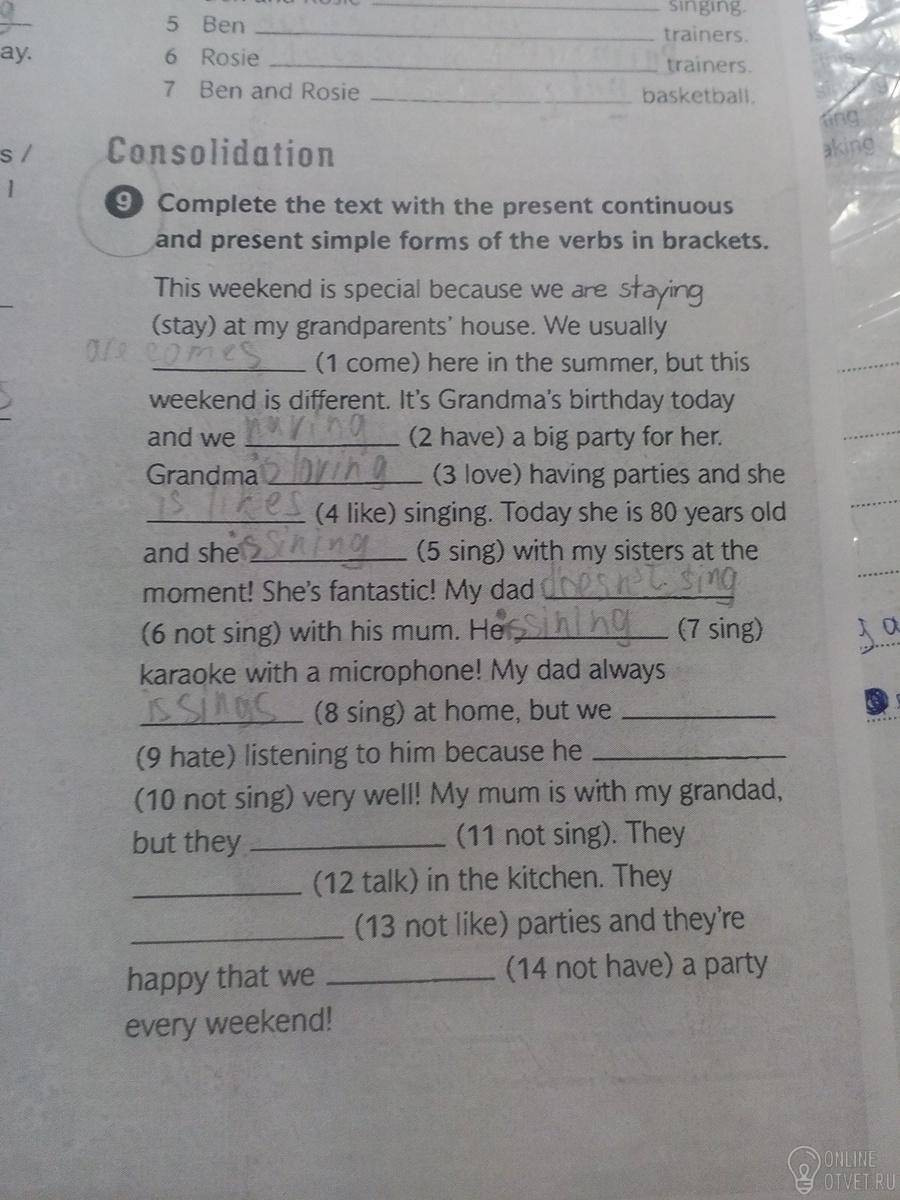 singing.
5 Ben ____ trainers.
ay.
6 Rosie ____ trainers.
7 Ben and Rosie ____ basketball.
s /
l
aking
Consolidation
9 Complete the text with the present continuous
and present simple forms of the verbs in brackets.
This weekend is special because we are staying
(stay) at my grandparents' house. We usually
are comes (1 come) here in the summer, but this
weekend is different. It's Grandma's birthday today
and we having (2 have) a big party for her.
Grandma's loving (3 love) having parties and she
is likes (4 like) singing. Today she is 80 years old
and she's sining (5 sing) with my sisters at the
moment! She's fantastic! My dad doesn't sing
(6 not sing) with his mum. He's sining (7 sing)
karaoke with a microphone! My dad always
is sings (8 sing) at home, but we ____
(9 hate) listening to him because he ____
(10 not sing) very well! My mum is with my grandad,
but they ____ (11 not sing). They
____ (12 talk) in the kitchen. They
____ (13 not like) parties and they're
happy that we ____ (14 not have) a party
every weekend!
ONLINE
OTVET.RU